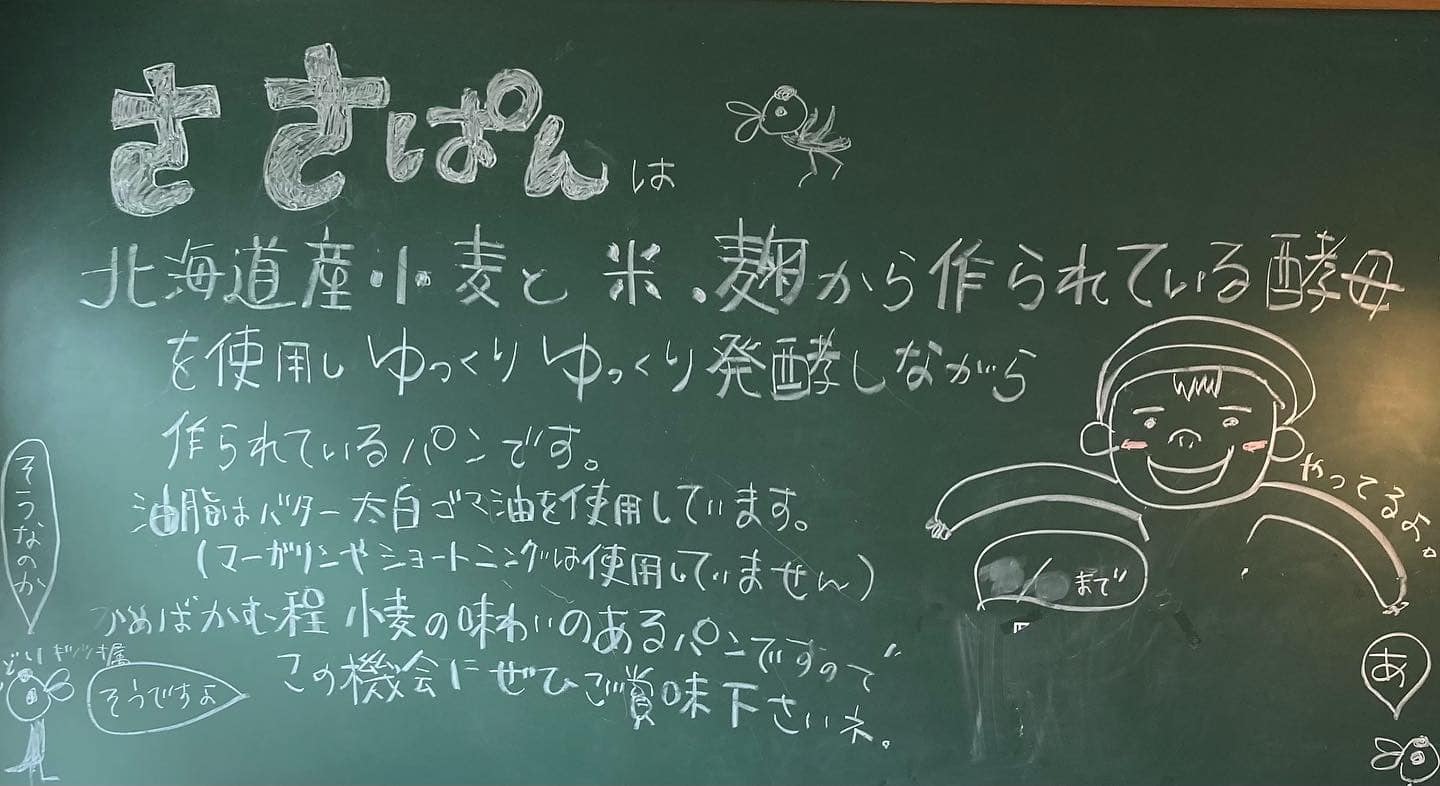 ささぱんは
北海道産小麦と米・麹から作られている酵母
を使用しゆっくりゆっくり発酵しながら
作られているパンです。
油脂はバター太白ゴマ油を使用しています。
(マーガリンやショートニングは使用していません)
かめばかむ程小麦の味わいのあるパンですので
この機会にぜひご賞味下さいネ。
やってるよ。
まで
そうなのか
そうですよ
あ